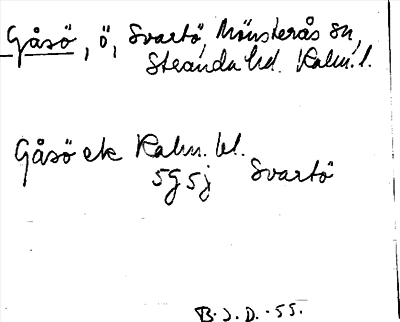 Gåsö, ö, Svartö, Mönsterås sn,
Stranda hd. Kalm. l.
Gåsö ek Kalm. bl.
5g5j Svartö
B.J.D. -55.